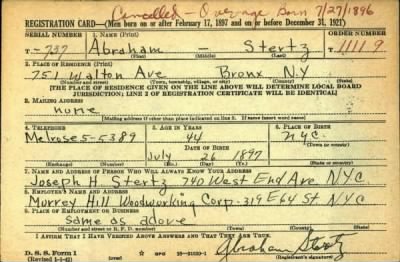 Cancelled - Overage Born 7/27/1896
REGISTRATION CARD—(Men born on or after February 17, 1897 and on or before December 31, 1921)
SERIAL NUMBER 1. NAME (Print) ORDER NUMBER
T-737 Abraham - Stertz 11119
(First) (Middle) (Last)
2. PLACE OF RESIDENCE (Print)
751 Walton Ave Bronx N.Y
(Number and street) (Town, township, village, or city) (County) (State)
[THE PLACE OF RESIDENCE GIVEN ON THE LINE ABOVE WILL DETERMINE LOCAL BOARD
JURISDICTION; LINE 2 OF REGISTRATION CERTIFICATE WILL BE IDENTICAL]
3. MAILING ADDRESS
home
[Mailing address if other than place indicated on line 2. If same insert word same]
4. TELEPHONE 5. AGE IN YEARS 6. PLACE OF BIRTH
Melrose 5-5389 44 N.Y.C.
DATE OF BIRTH (Town or county)
July 26 1897
(Exchange) (Number) (Mo.) (Day) (Yr.) (State or country)
7. NAME AND ADDRESS OF PERSON WHO WILL ALWAYS KNOW YOUR ADDRESS
Joseph H. Stertz 740 West End Ave NYC
8. EMPLOYER'S NAME AND ADDRESS
Murrey Hill Woodworking Corp. 319 E 64 St NYC
9. PLACE OF EMPLOYMENT OR BUSINESS
Same as above
(Number and street or R. F. D. number) (Town) (County) (State)
I AFFIRM THAT I HAVE VERIFIED ABOVE ANSWERS AND THAT THEY ARE TRUE.
Abraham Stertz
D. S. S. Form 1
(Revised 1-1-42) (over) (Registrant's signature)